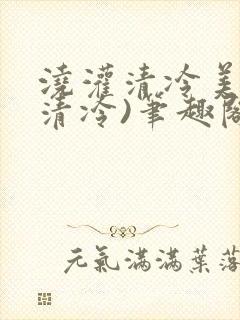 澆灌清冷美
清冷)筆趣閣
元氣滿滿葉落